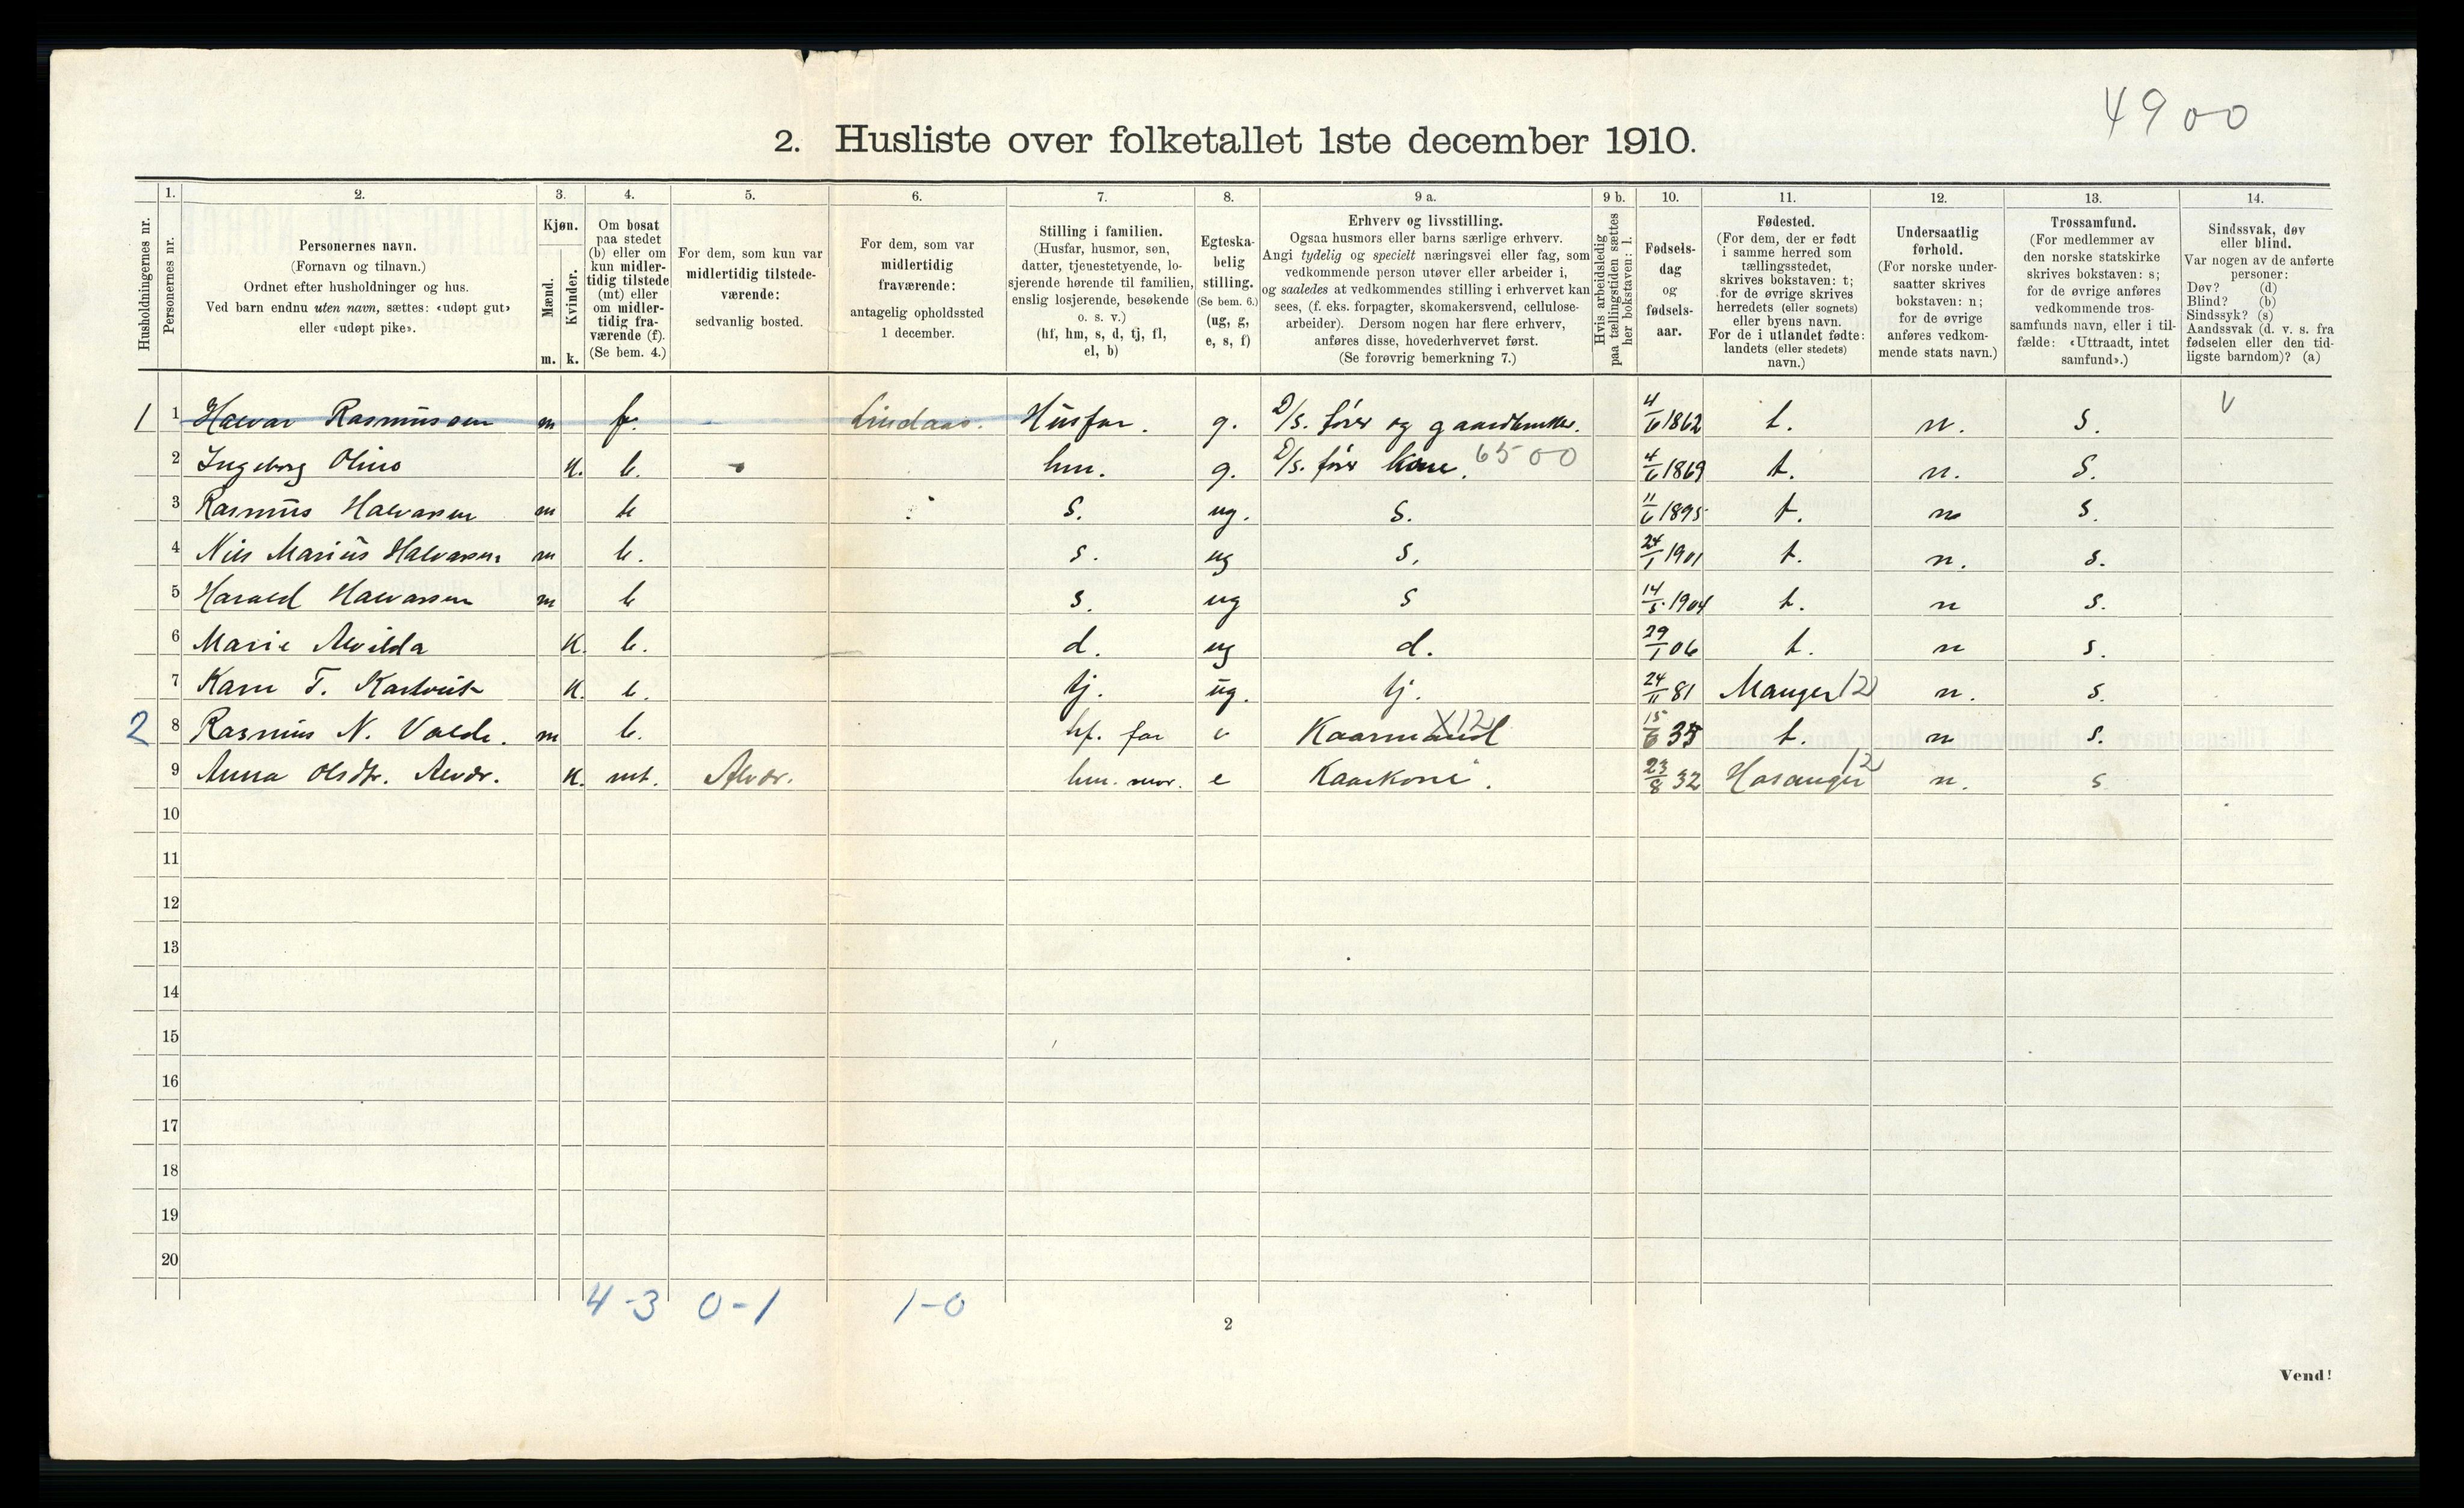 4900
2. Husliste over folketallet 1ste december 1910.
Husholdningernes nr.
1.
Personernes nr.
2.
Personernes navn.
(Fornavn og tilnavn.)
Ordnet efter husholdninger og hus.
Ved barn endnu uten navn, sættes: «udøpt gut»
eller «udøpt pike».
3.
Kjøn.
Mænd.
Kvinder.
m. k.
4.
Om bosat
paa stedet
(b) eller om
kun midler-
tidig tilstede
(mt) eller
om midler-
tidig fra-
værende (f).
(Se bem. 4.)
5.
For dem, som kun var
midlertidig tilstede-
værende:
sedvanlig bosted.
6.
For dem, som var
midlertidig
fraværende:
antagelig opholdssted
1 december.
7.
Stilling i familien.
(Husfar, husmor, søn,
datter, tjenestetyende, lo-
sjerende hørende til familien,
enslig losjerende, besøkende
o. s. v.)
(hf, hm, s, d, tj, fl,
el, b)
8.
Egteska-
belig
stilling.
(Se bem. 6.)
(ug, g,
e, s, f)
9 a.
Erhverv og livsstilling.
Ogsaa husmors eller barns særlige erhverv.
Angi tydelig og specielt næringsvei eller fag, som
vedkommende person utøver eller arbeider i,
og saaledes at vedkommendes stilling i erhvervet kan
sees, (f. eks. forpagter, skomakersvend, cellulose-
arbeider). Dersom nogen har flere erhverv,
anføres disse, hovederhvervet først.
(Se forøvrig bemerkning 7.)
9 b.
Hvis arbeidsledig
paa tællingstiden sættes
her bokstaven: l.
10.
Fødsels-
dag
og
fødsels-
aar.
11.
Fødested.
(For dem, der er født
i samme herred som
tællingsstedet,
skrives bokstaven: t;
for de øvrige skrives
herredets (eller sognets)
eller byens navn.
For de i utlandet fødte:
landets (eller stedets)
navn.)
12.
Undersaatlig
forhold.
(For norske under-
saatter skrives
bokstaven: n;
for de øvrige
anføres vedkom-
mende stats navn.)
13.
Trossamfund.
(For medlemmer av
den norske statskirke
skrives bokstaven: s;
for de øvrige anføres
vedkommende tros-
samfunds navn, eller i til-
fælde: «Uttraadt, intet
samfund».)
14.
Sindssvak, døv
eller blind.
Var nogen av de anførte
personer:
Døv? (d)
Blind? (b)
Sindssyk? (s)
Aandssvak (d. v. s. fra
fødselen eller den tid-
ligste barndom)? (a)
1 1 Halvar Rasmussen m f. - Lindaas. Husfar. g. D/s. fører og gaardbruker. 4/6 1862 t. n. s. V
2 Ingeborg Oline k. b. hm. g. D/s. fører kone. 6500 4/6 1869 t. n. s.
3 Rasmus Halvarsen m b s. ug. s. 11/6 1895 t. n s.
4 Nils Marius Halvarsen m b. s. ug s. 24/1 1901 t. n. s.
5 Harald Halvarsen m b s. ug s 14/5 1904 t. n s.
6 Marie Alvilda k. b. d. ug d. 29/1 06 t. n s.
7 Kari T. k. b. tj. ug. tj. 24/11 81 Manger 12 n. s.
2 8 Rasmus N. Valde. m b. hf. far e Kaarmand X12 15/6 35 t. n s.
9 Anna Olsdtr. Alvær. k. mt. Alvær. hm. mor. e Kaarkone. 23/8 32 Hosanger 12 n. s
10
11
12
13
14
15
16
17
18
19
20
4-3 0-1 1-0
2
Vend!